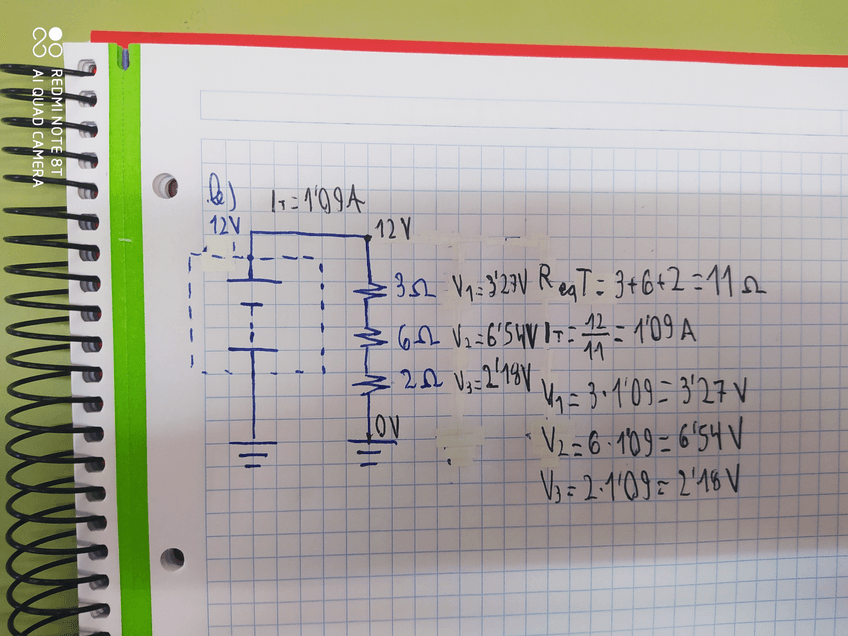 REDMI NOTE 8T
AI QUAD CAMERA
b) IT = 1'09 A
12V
12 V
3 Ω V1 = 3'27V
6 Ω V2 = 6'54V
2 Ω V3 = 2'18V
0V
ReqT = 3+6+2 = 11 Ω
IT = 12/11 = 1'09 A
V1 = 3·1'09 = 3'27 V
V2 = 6·1'09 = 6'54 V
V3 = 2·1'09 = 2'18 V